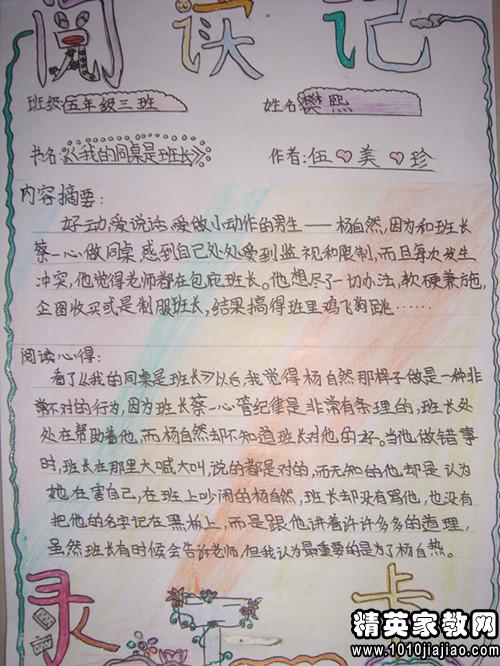 阅读记
班级:五年级三班 姓名:樊熙
书名:《我的同桌是班长》 作者:伍美珍
内容摘要:
好动,爱说话,爱做小动作的男生——杨自然,因为和班长
蔡一心做同桌感到自己处处受到监视和限制,而且每次发生
冲突,他觉得老师都在包庇班长。他想尽了一切办法,软硬兼施,
企图收买或是制服班长,结果搞得班里鸡飞狗跳……
阅读心得:
看了《我的同桌是班长》以后,我觉得杨自然那样子做是一种非
常不对的行为,因为班长蔡一心管纪律是非常有条理的,班长处
处在帮助着他,而杨自然却不知道班长对他的好。当他做错事
时,班长在那里大喊大叫,说的都是对的,而无知的他却是认为
她在害自己,在班上吵闹的杨自然,班长却没有骂他,也没有
把他的名字记在黑板上,而是跟他讲着许许多多的道理,
虽然班长有时候会告诉老师,但我认为最重要的是为了杨自热。
录卡
精英家教网
www.1010jiajiao.com